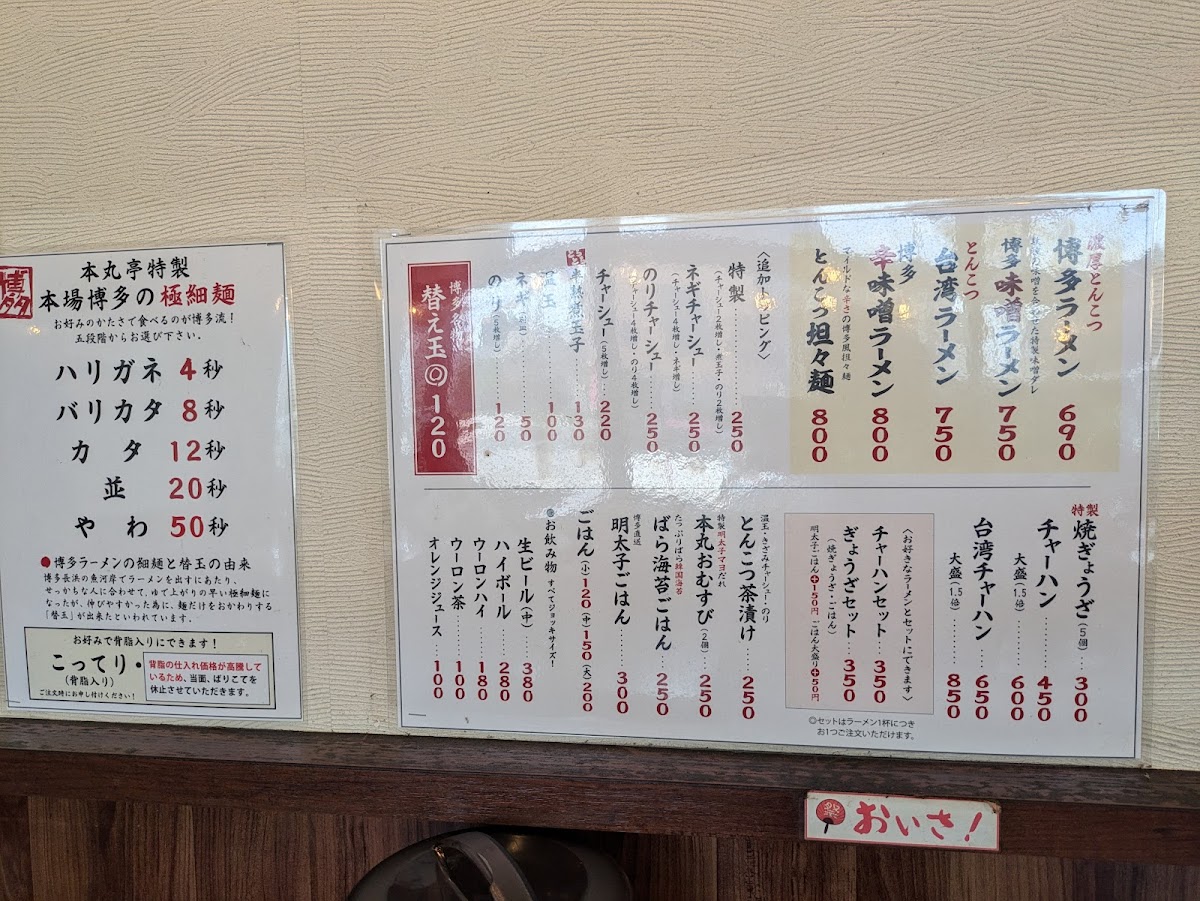 博多
本丸亭特製
本場博多の極細麺
お好みのかたさで食べるのが博多流!
五段階からお選び下さい。
ハリガネ 4秒
バリカタ 8秒
カタ 12秒
並 20秒
やわ 50秒
●博多ラーメンの細麺と替玉の由来
博多長浜の魚河岸でラーメンを出すにあたり、
せっかちな人に合わせて、ゆで上がりの早い極細麺に
なったが、伸びやすかった為に、麺だけをおかわりする
「替玉」が出来たといわれています。
お好みで背脂入りにできます!
こってり・
(背脂入り)
ご注文時にお申し付けください!
背脂の仕入れ価格が高騰して
いるため、当面、ばりこてを
休止させていただきます。
濃厚とんこつ
博多ラーメン 690
博多味噌ラーメン 750
とんこつ
台湾ラーメン 750
博多
辛味噌ラーメン 800
とんこつ担々麺 800
マイルドな辛さの博多風担々麺
〈追加トッピング〉
特製 250
(チャーシュー2枚増し・煮玉子・のり2枚増し)
ネギチャーシュー 250
(チャーシュー4枚増し・ネギ増し)
のりチャーシュー 250
(チャーシュー4枚増し・のり4枚増し)
チャーシュー(5枚増し) 220
130
温玉 100
ネギ 50
のり(5枚増し) 120
替え玉◎120
特製
焼ぎょうざ(5個) 300
チャーハン 450
大盛(1.5倍) 600
台湾チャーハン 650
大盛(1.5倍) 850
〈お好きなラーメンとセットにできます〉
チャーハンセット 350
ぎょうざセット 350
(焼ぎょうざ・ごはん)
明太子ごはん+150円 ごはん大盛り+50円
◎セットはラーメン1杯につき
お1つご注文いただけます。
とんこつ茶漬け 250
温玉・きざみチャーシュー・のり
本丸おむすび(2個) 250
特製明太子マヨだれ
ばら海苔ごはん 250
たっぷりばら韓国海苔
明太子ごはん 300
博多直送
ごはん(小)120(中)150(大)200
お飲み物 すべてジョッキサイズ!
生ビール(中) 380
ハイボール 280
ウーロンハイ 180
ウーロン茶 100
オレンジジュース 100
おいさ!